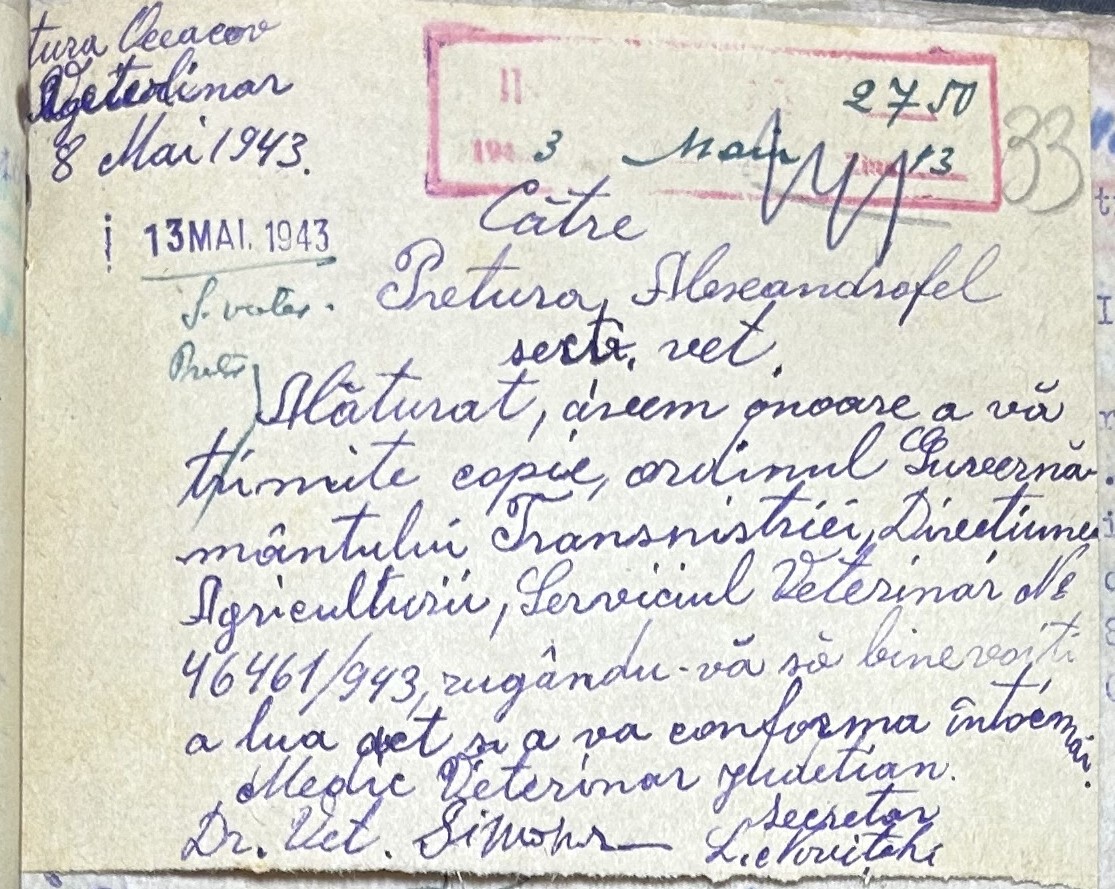 tura Oceacov
Veterinar
8 Mai 1943.
2750
194 3 Maiu 13
33
13 MAI. 1943
Către
Pretura, Alexandrofel
sect. vet.
Alăturat, avem onoare a vă
trimite copie, ordinul Guvernă-
mântului Transnistriei, Direcțiunea
Agriculturii, Serviciul Veterinar No
46461/943, rugându-vă să binevoiți
a lua act și a va conforma întocmai.
Medic Veterinar județian.
Dr. Vet.
Secretar